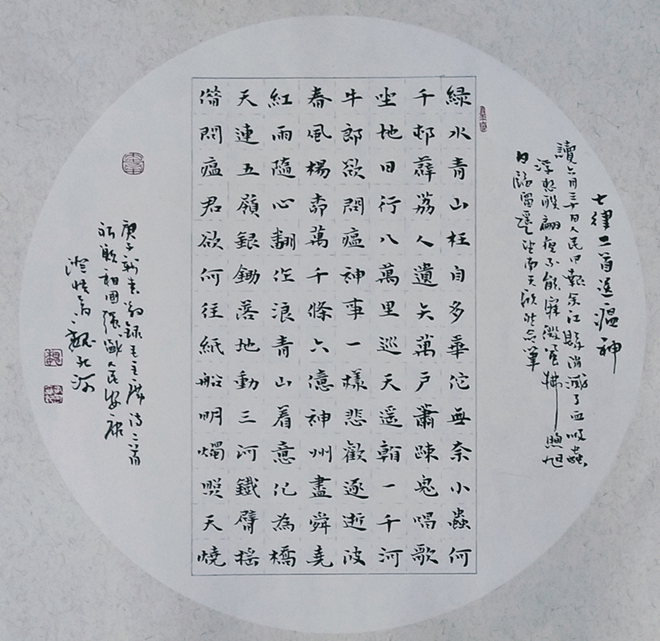 七律二首送瘟神
讀六月三十日人民日報余江縣消滅了血吸蟲
浮想聯翩夜不能寐微風拂煦旭
日臨窗遙望南天欣然命筆
綠水青山枉自多華佗無奈小蟲何
千邨薜荔人遺矢萬戶蕭疎鬼唱歌
坐地日行八萬里巡天遙看一千河
牛郎欲問瘟神事一樣悲歡逐逝波
春風楊柳萬千條六億神州盡舜堯
紅雨隨心翻作浪青山着意化為橋
天連五嶺銀鋤落地動三河鐵臂搖
借問瘟君欲何往紙船明燭照天燒
庚子新春敬録毛主席詩二首
祝願祖國强盛人民安康